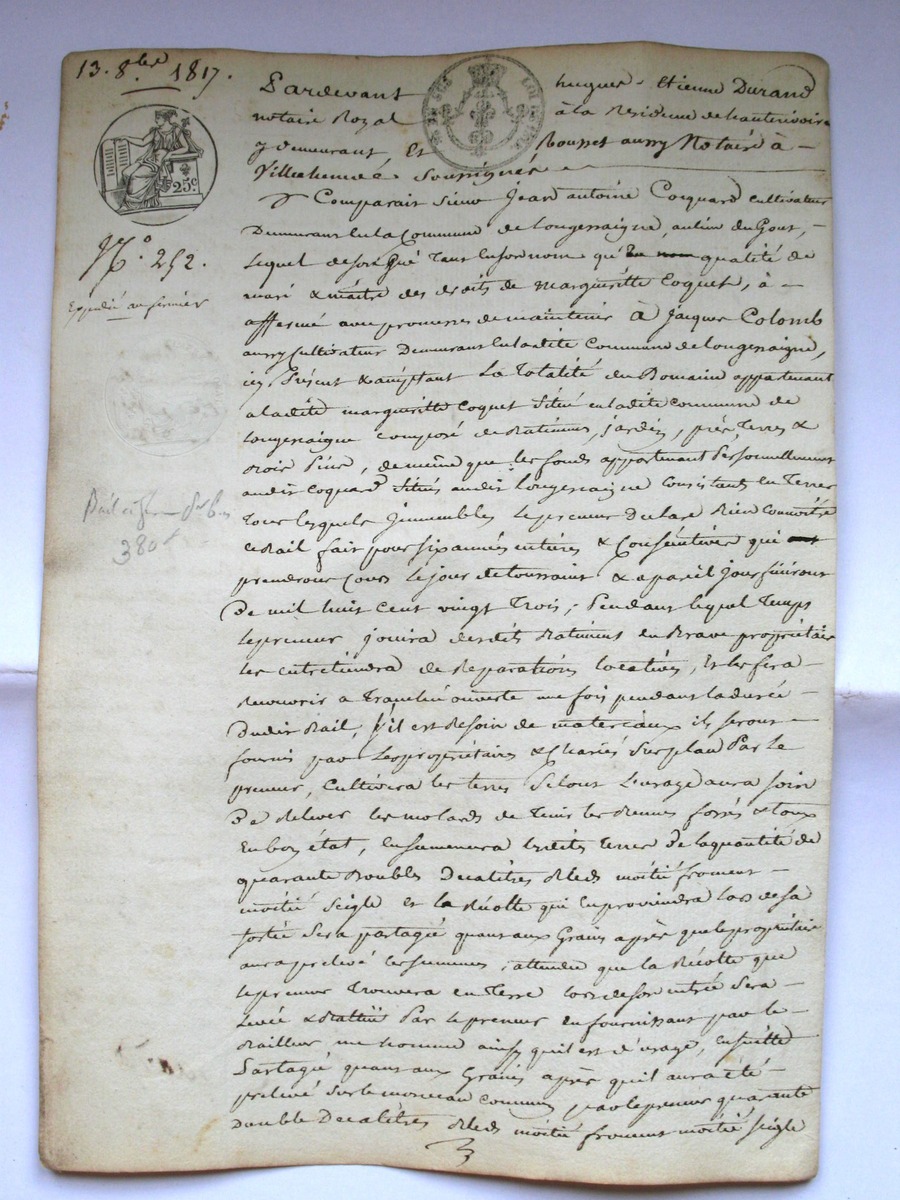 13. 8bre 1817.
25c
No. 252.
Expédié au fermier
380f
Pardevant hugues - Etienne Durand
notaire Royal à la Résidence de hauterivoire
y demeurant Et Rousset aussy Notaire à -
Villechenève Soussignés
Comparait Sieur Jean antoine Coquard cultivateur
Demeurant En la Commune de Longessaigne, au lieu du Gout, -
Lequel de son Gré Tant En son nom qu'En qualité de
mari & maître des droits de Margueritte Coquet, à -
affermé avec promesses de maintenir à Jacques Colomb
aussy Cultivateur Demeurant En ladite Commune de Longessaigne,
icy Présent & acceptant La Totalité du Domaine appartenant
a ladite margueritte Coquet Situé en ladite commune de
Longessaigne composé de Batiments, jardin, près, Terres &
Bois Pins, de même que les fonds appartenant Personnellement
audit Coquard Situés audit Longessaigne Consistants En Terres
Tous lesquels jmmeubles le preneur Declare Bien Connoitre
Ce Bail fait pour six années entières & Consécutives qui
prendront Cours Le jour de toussaint & a pareil jour finiront
De mil huit cent vingt Trois, Pendant lequel Temps
Le preneur jouira desdits Batiments En Brave propriétaire
les entretiendra de Réparations locatives, Et les fera -
Recouvrir a Tranchée ouverte une fois pendant la durée -
Dudit Bail, S'il est Besoin de materiaux ils seront -
fournis par Les propriétaires & Chariés Sur plan Par Le
preneur, Cultivera les terres Selon L'usage aura soin
De Relever les molards de Tenir les Biennes fossés & Tout
En bon état, Ensemencera lesdites Terres de la quantité de
quarante Doubles Decalitres Bleds moitié froment -
moitié Seigle Et la Récolte qui En proviendra lors de sa
sortie Sera partagée quant aux Grains après que le propriétaire
aura prelevé les semences, attendu que la Récolte que
le preneur Trouvera en Terre lors de son entrée Sera -
Levée & Battüe Par le preneur En fournissant par le -
Bailleur un homme ainsy qu'il est d'usage, Ensuitte
Partagé quant aux Grains après qu'il aura été -
prelevé Sur le monceau commun par le preneur quarante
Double Decalitres Bleds moitié froment moitié Seigle